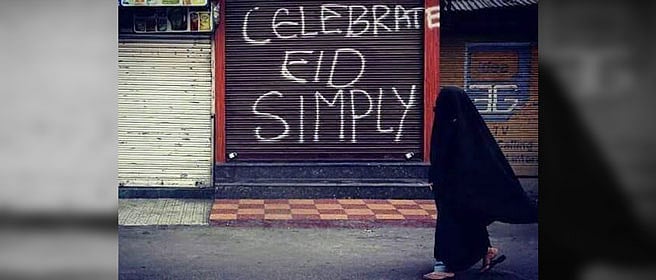 CELEBRATE
EID
SIMPLY